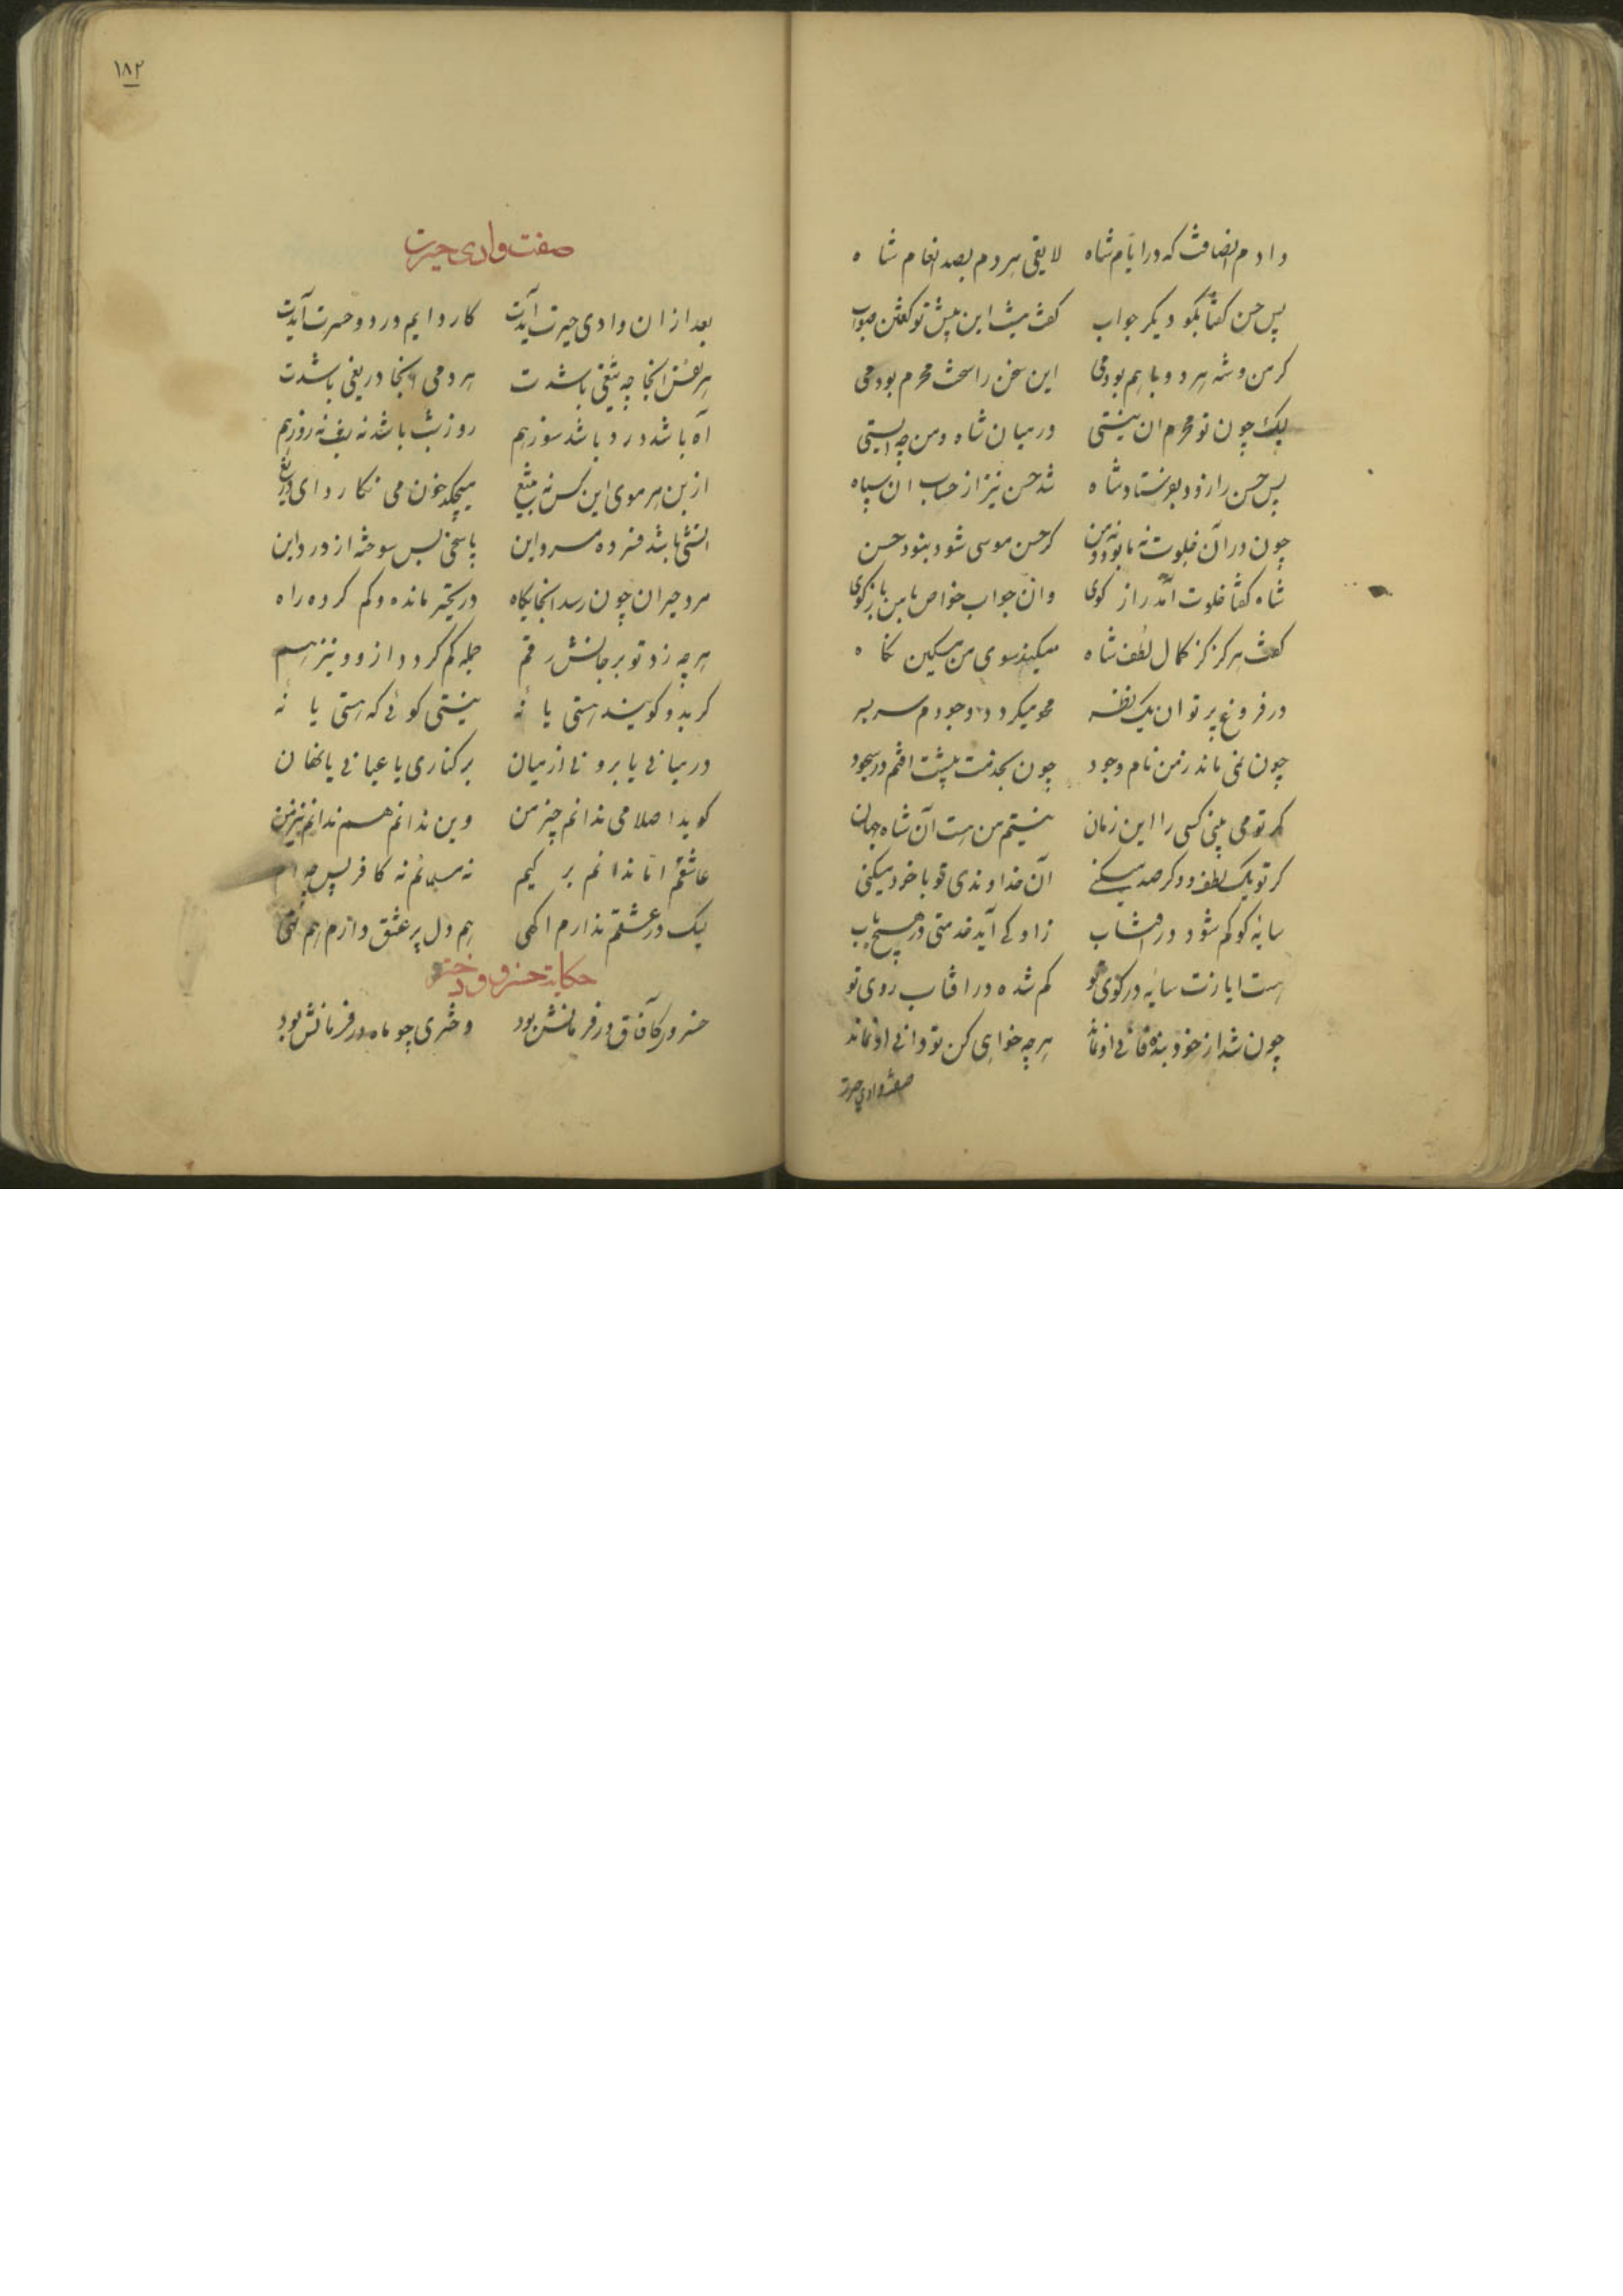 دادم انصافت که در ایام شاه لایقی هر دم بصد انعام شاه
پس حسن گفتا بگو دیگر جواب گفت نیست این پیش تو گفتن صواب
گر من و شه هر دو با هم بودمی این سخن را سخت محرم بودمی
لیک چون تو محرم ان نیستی در میان شاه و من چه ایستی
پس حسن را زود بفرستاد شاه شد حسن نیز از حساب ان سپاه
چون در آن خلوت نه ما بود و نه من گر حسن موسی شود نبود حسن
شاه گفتا خلوت آمد راز گوی وان جواب خواص با من باز گوی
گفت هر گز کز کمال لطف شاه میکند سوی من مسکین نگاه
در فروغ پرتو ان یک نظر محو میگردد وجودم سر بسر
چون نمی ماند ز من نام وجود چون بخدمت پیشت افتم در سجود
گر تو می بینی کسی را این زمان نیستم من هست آن شاه جهان
گر تو یک لطف و دگر صد میکنی آن خداوندی تو با خود میکنی
سایهٔ کو گم شود در افتاب زاو کی آید خدمتی در هیچ باب
هست ایازت سایهٔ در کوی تو گم شده در افتاب روی تو
چون شد از خود بنده فانی او نماند هر چه خواهی کن تو دانی او نماند
صفت وادی حیرت
۱۸۲
صفت وادی حیرت
بعد ازان وادی حیرت آیدت کار دایم درد و حسرت آیدت
هر نفس اینجا چو تیغی باشدت هر دمی اینجا دریغی باشدت
آه باشد درد باشد سوز هم روز شب باشد نه شب نه روز هم
از بن هر موی این کس نه بتیغ میچکد خون می نگارد ای دریغ
اتشی باشد فسرده مرد این یا یخی بس سوخته از درد این
مرد حیران چون رسد اینجایگاه در تحیر مانده و گم کرده راه
هر چه زد توبر جانش رقم جمله گم گردد ازو و نیز هم
گر بدو گویند هستی یا نهٔ نیستی گوئی که هستی یا نهٔ
در میانی یا برونی از میان بر کناری یا عیانی یا نهان
گوید اصلا می ندانم چیز من وین ندانم هم ندانم نیز من
عاشقم اما ندانم بر کیم نه مسلمانم نه کافر پس چه ام
لیک در عشقم ندارم اگهی هم دل پر عشق دارم هم تهی
حکایت خسرو و دختر او
خسروی کآفاق در فرمانش بود دختری چو ماه در فرمانش بود